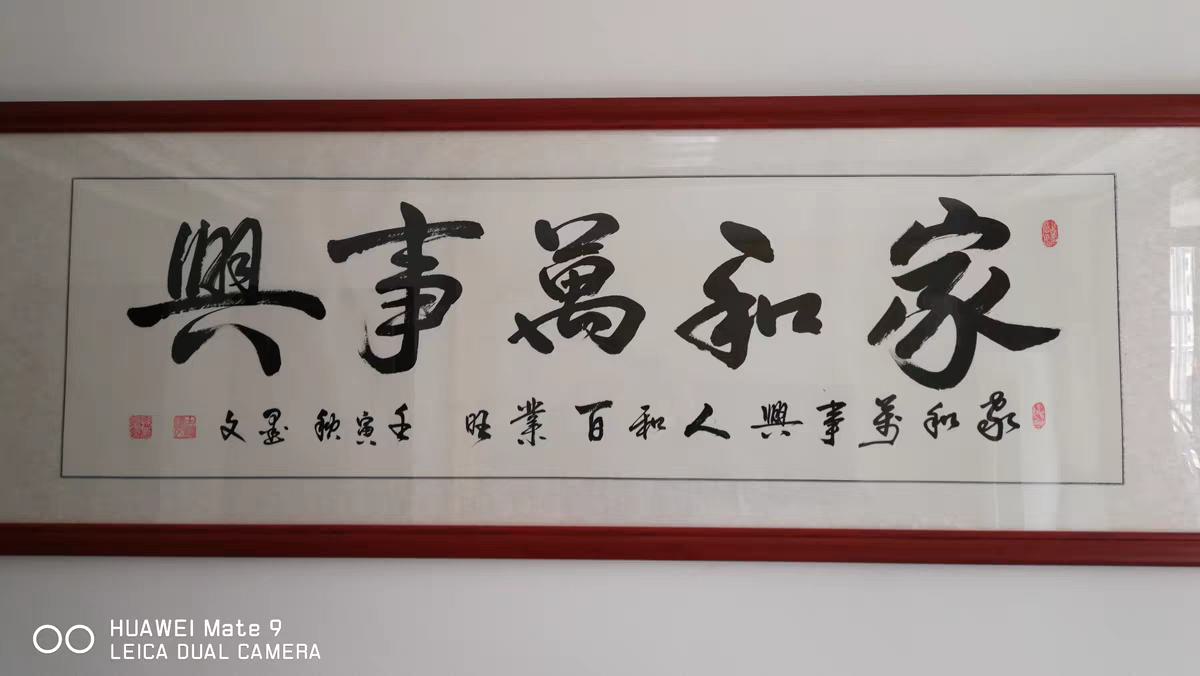 家和萬事興
家和萬事興人和百業旺 壬寅秋墨文
HUAWEI Mate 9
LEICA DUAL CAMERA